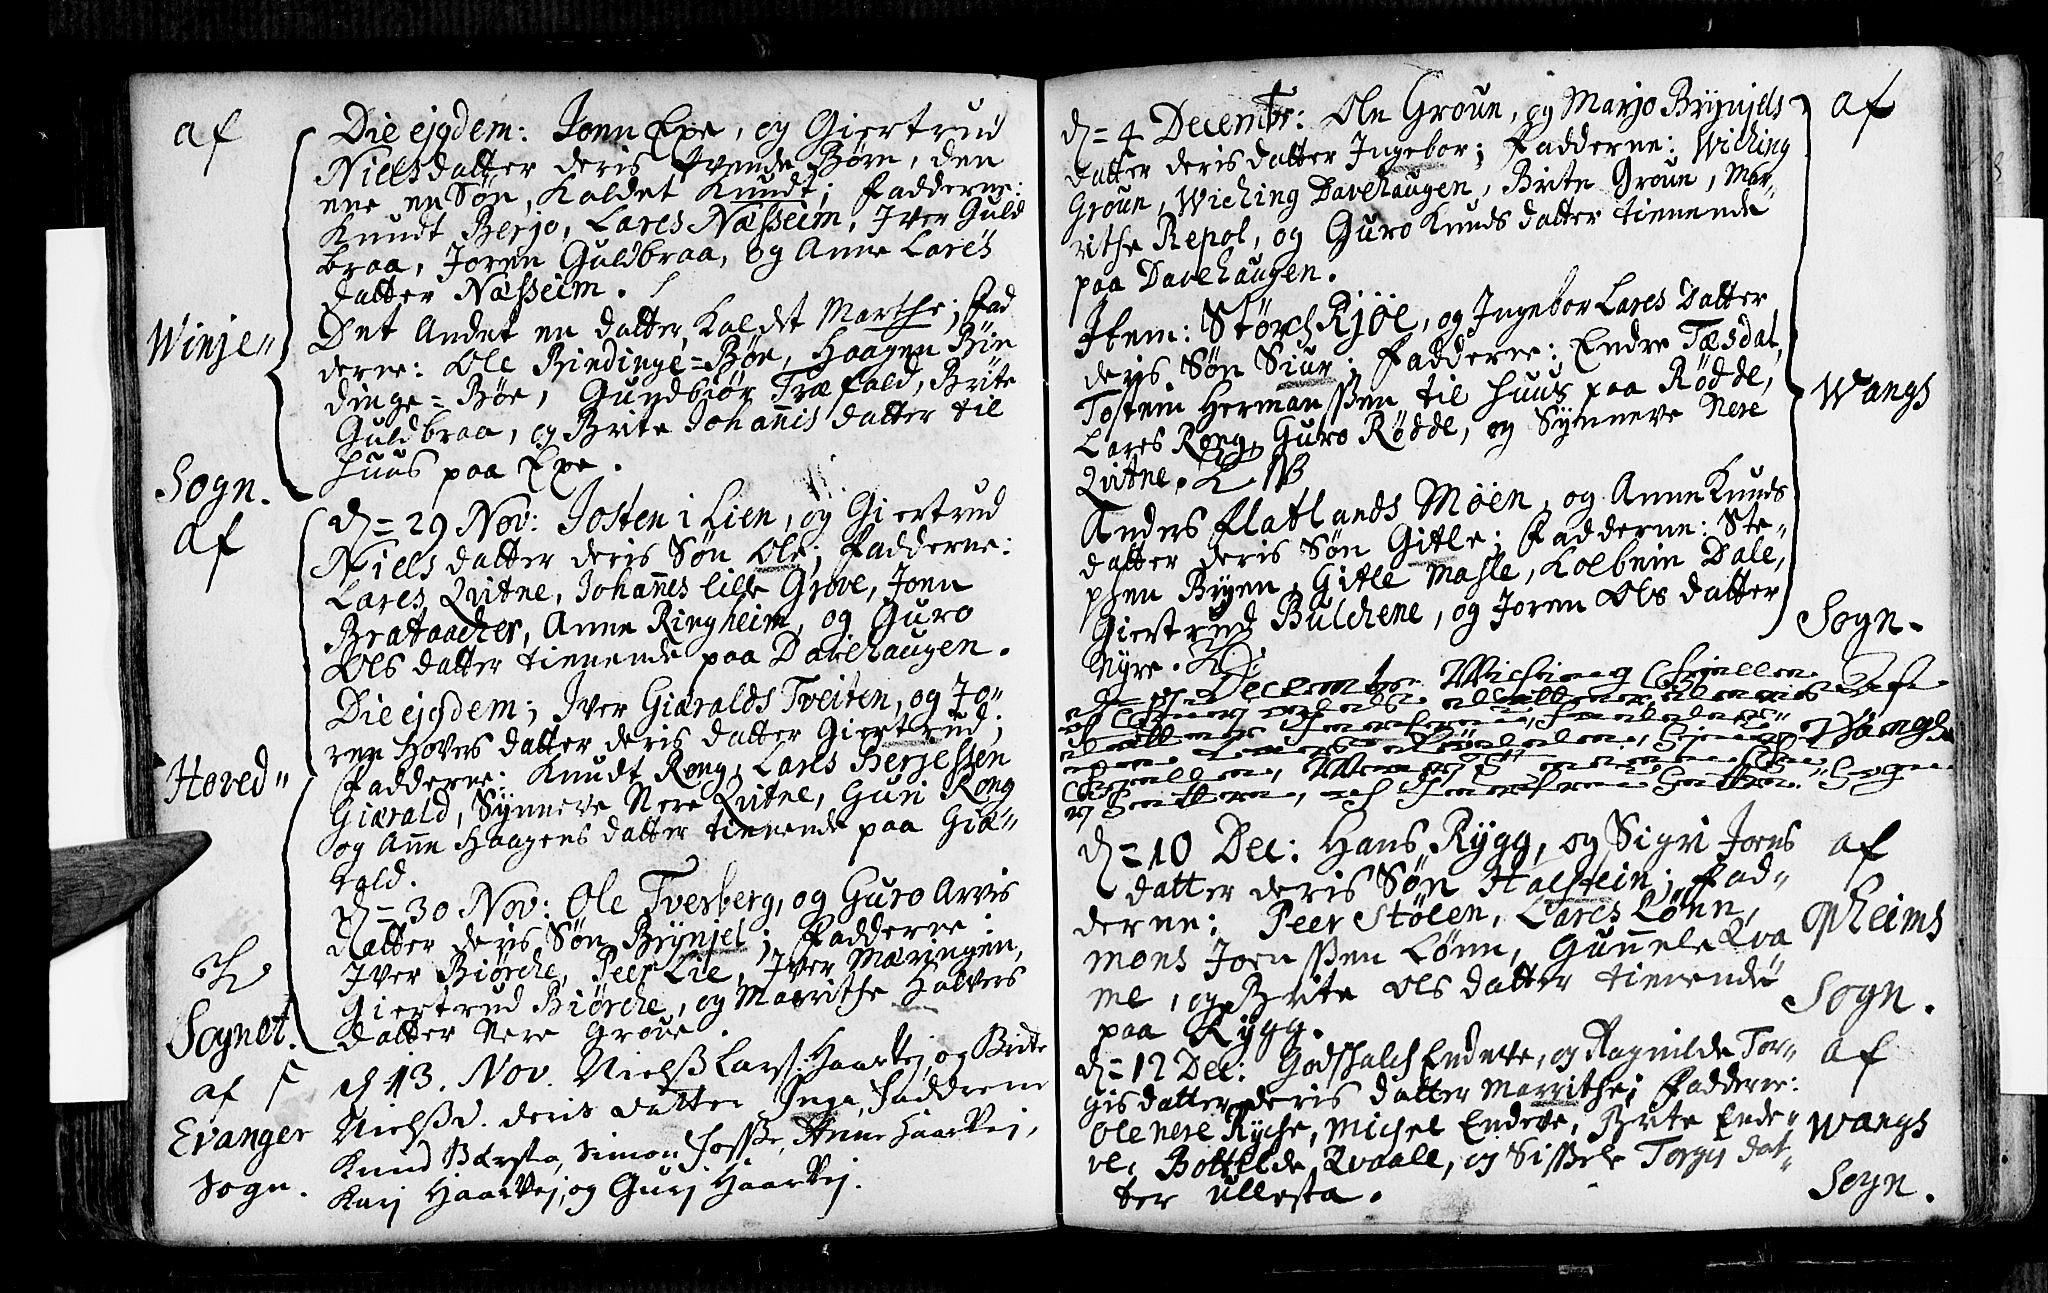 af
Winje"
Sogn.
af
Hoved"
Sognet.
af
Evanger
Sogn.
Die ejsdem: Jonn Epe, og Giertrud
Nielsdatter deris tvende Børn, den
ene en Søn, kaldet Knudt; Fadderne:
Knudt Berjo, Lares Næsheim, Iver Guld
braa, Joren Guldbraa, og Anne Lares
datter Næsheim.
Det Andet en datter, kaldet Marthe; Fad
derne: Ole Bindinge=Bøe, Haagen Bin
dinge=Bøe, Gundbiør Træfald, Brite
Guldbraa, og Brite Johannis datter til
huus paa Epe.
d = 29 Nov: Josten i Lien, og Giertrud
Niels datter deris Søn Ole; Fadderne:
Lares Qvitne, Johannes lille Grove, Jonn
Brataacker, Anne Ringheim, og Guro
Ols datter tienende paa Davehaugen.
Die ejsdem; Iver Giæralds Tveiten, og Jo"
ren Hovers datter deris datter Giertrud;
Fadderne: Knudt Rong, Lares Berjessen
Giærald, Synneve Nere Qvitne, Guri Rong
og Anne Haagens datter tienende paa Giæ"
rald.
d = 30 Nov: Ole Tverberg, og Guro Arvis
datter deris Søn Brynjel; Fadderne:
Iver Biørche, Peer Lie, Iver Mæringen,
Giertrud Biørche, og Marithe Halvers
datter Nere Groue.
d 13. Nov. Nielß Larß: Haarvej, og Brite
Nielßd. deris datter Inga, Faddrene
Knud Bærsta, Simon Fosse, Anne Haarvej,
Kari Haarvej, og Guri Haarvej.
d = 4 Decembr: Ole Groue, og Marjo Brynjels
datter deris datter Ingebor; Fadderne: Wiching
Groun, Wiching Davehaugen, Brite Groun, Mar"
rithe Repol, og Guro Knuds datter tienende
paa Davehaugen.
Item: Størch Rjøe, og Ingebor Lares datter
deris Søn Siur; Fadderne: Endre Tæsdal,
Tosten Hermanssen til huus paa Rødde,
Lares Rong, Guro Rødde, og Synneve Nere
Qvitne.
Anders Flatlands Møen, og Anne Knuds
datter deris Søn Gitle; Fadderne: Ste"
phen Byen, Gitle Mahle, Kolbein Dale,
Giertrud Bulchene, og Joren Ols datter
Nyre.
Decembr Wiching
d = 10 Dec: Hans Rygg, og Sigri Jorns
datter deris Søn Halstein; Fad"
derne: Peer Stølen, Lares Lønn,
Mons Jornssen Lønn, Gunnele Qva
me, og Brite Ols datter tienende
paa Rygg.
d = 12 Dec: Godskalch Endeve, og Ragnilde Tor"
gis datter deris datter Marrithe; Fadderne:
Ole Nere Ryche, Michel Endeve, Brite Ende"
ve, Bothilde Qvaale, og Sissele Torgis dat"
ter Ullesta.
af
Wangs
Sogn.
af
Wangs
Sogn
af
Opheims
Sogn.
af
Wangs
Sogn.